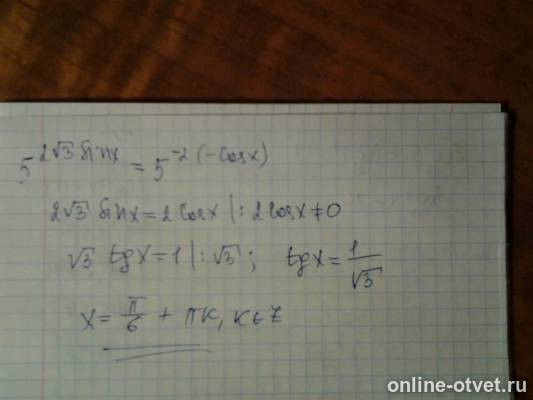 5^{2√3 sin x} = 5^{-2(-cos x)}
2√3 sin x = 2cos x |: 2cos x ≠ 0
√3 tg x = 1 |: √3 ; tg x = 1/√3
x = π/6 + πk, k ∈ Z
online-otvet.ru